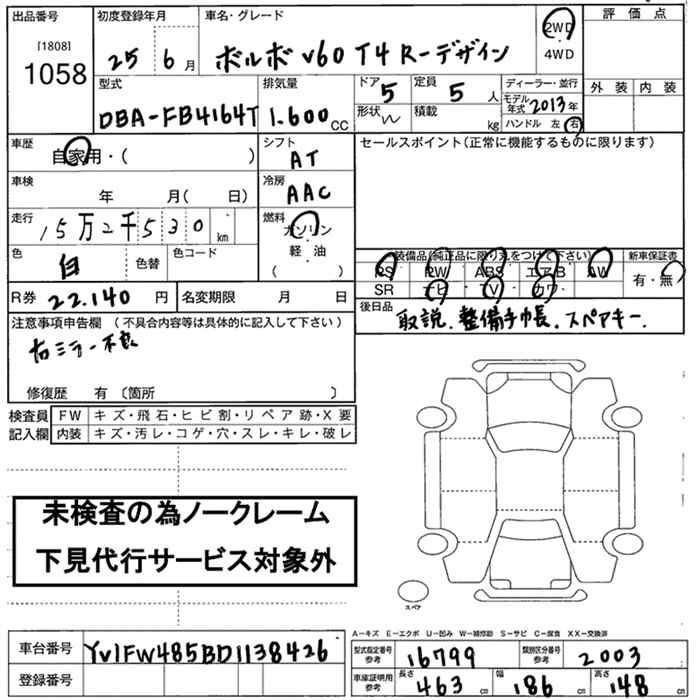 出品番号 初度登録年月 車名・グレード 2WD 評価点
[1808] 1058 25 6月 ボルボ V60 T4 R-デザイン ・ 4WD
型式 排気量 ドア 5 定員 5人 ディーラー・並行 外装 内装
DBA-FB4164T 1.600cc 形状 W 積載 kg モデル年式 2013年
ハンドル 左 右
車歴 自家用・( ) シフト AT セールスポイント(正常に機能するものに限ります)
車検 年 月( 日) 冷房 AAC
走行 15万2千530km 燃料 ガソリン・軽・油 ( )
色 白 色替 色コード 装備品(純正品に限り丸をつけて下さい) 新車保証書
PS PW ABS エアB AW 有・無
SR ナビ TV カワ
R券 22.140円 名変期限 月 日 後日品 取説.整備手帳.スペアキー.
注意事項申告欄 (不具合内容等は具体的に記入して下さい)
右ミラー不良
修復歴 有 〔箇所 〕
検査員 FW キズ・飛石・ヒビ割・リペア跡・X要
記入欄 内装 キズ・汚レ・コゲ・穴・スレ・キレ・破レ
未検査の為ノークレーム
下見代行サービス対象外
スペア
A−キズ E−エクボ U−凹み W−補修跡 S−サビ C−腐食 XX−交換済
車台番号 YV1FW485BD1138426 型式指定番号 参考 16799 類別区分番号 参考 2003
登録番号 車庫証明用 参考 長さ 463cm 幅 186cm 高さ 148cm